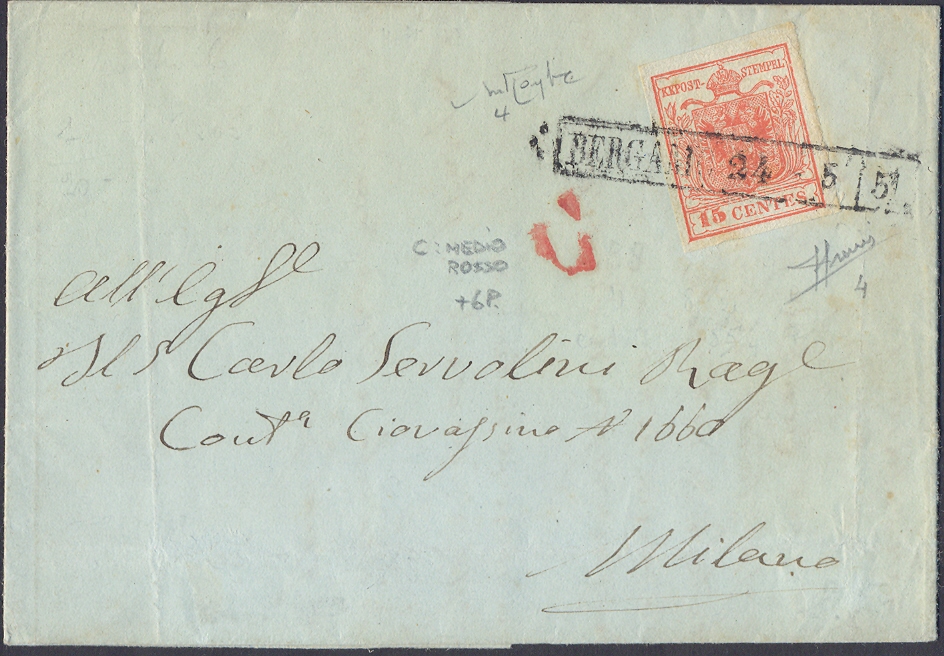 KKPOST-STEMPEL
BERGAM 24 5 51
15 CENTES.
4
C: MEDIO
ROSSO
+6P.
4
All'Egr
Il S Carlo Servolini Rag
Cont.a Ciovassino N 1660
Milano